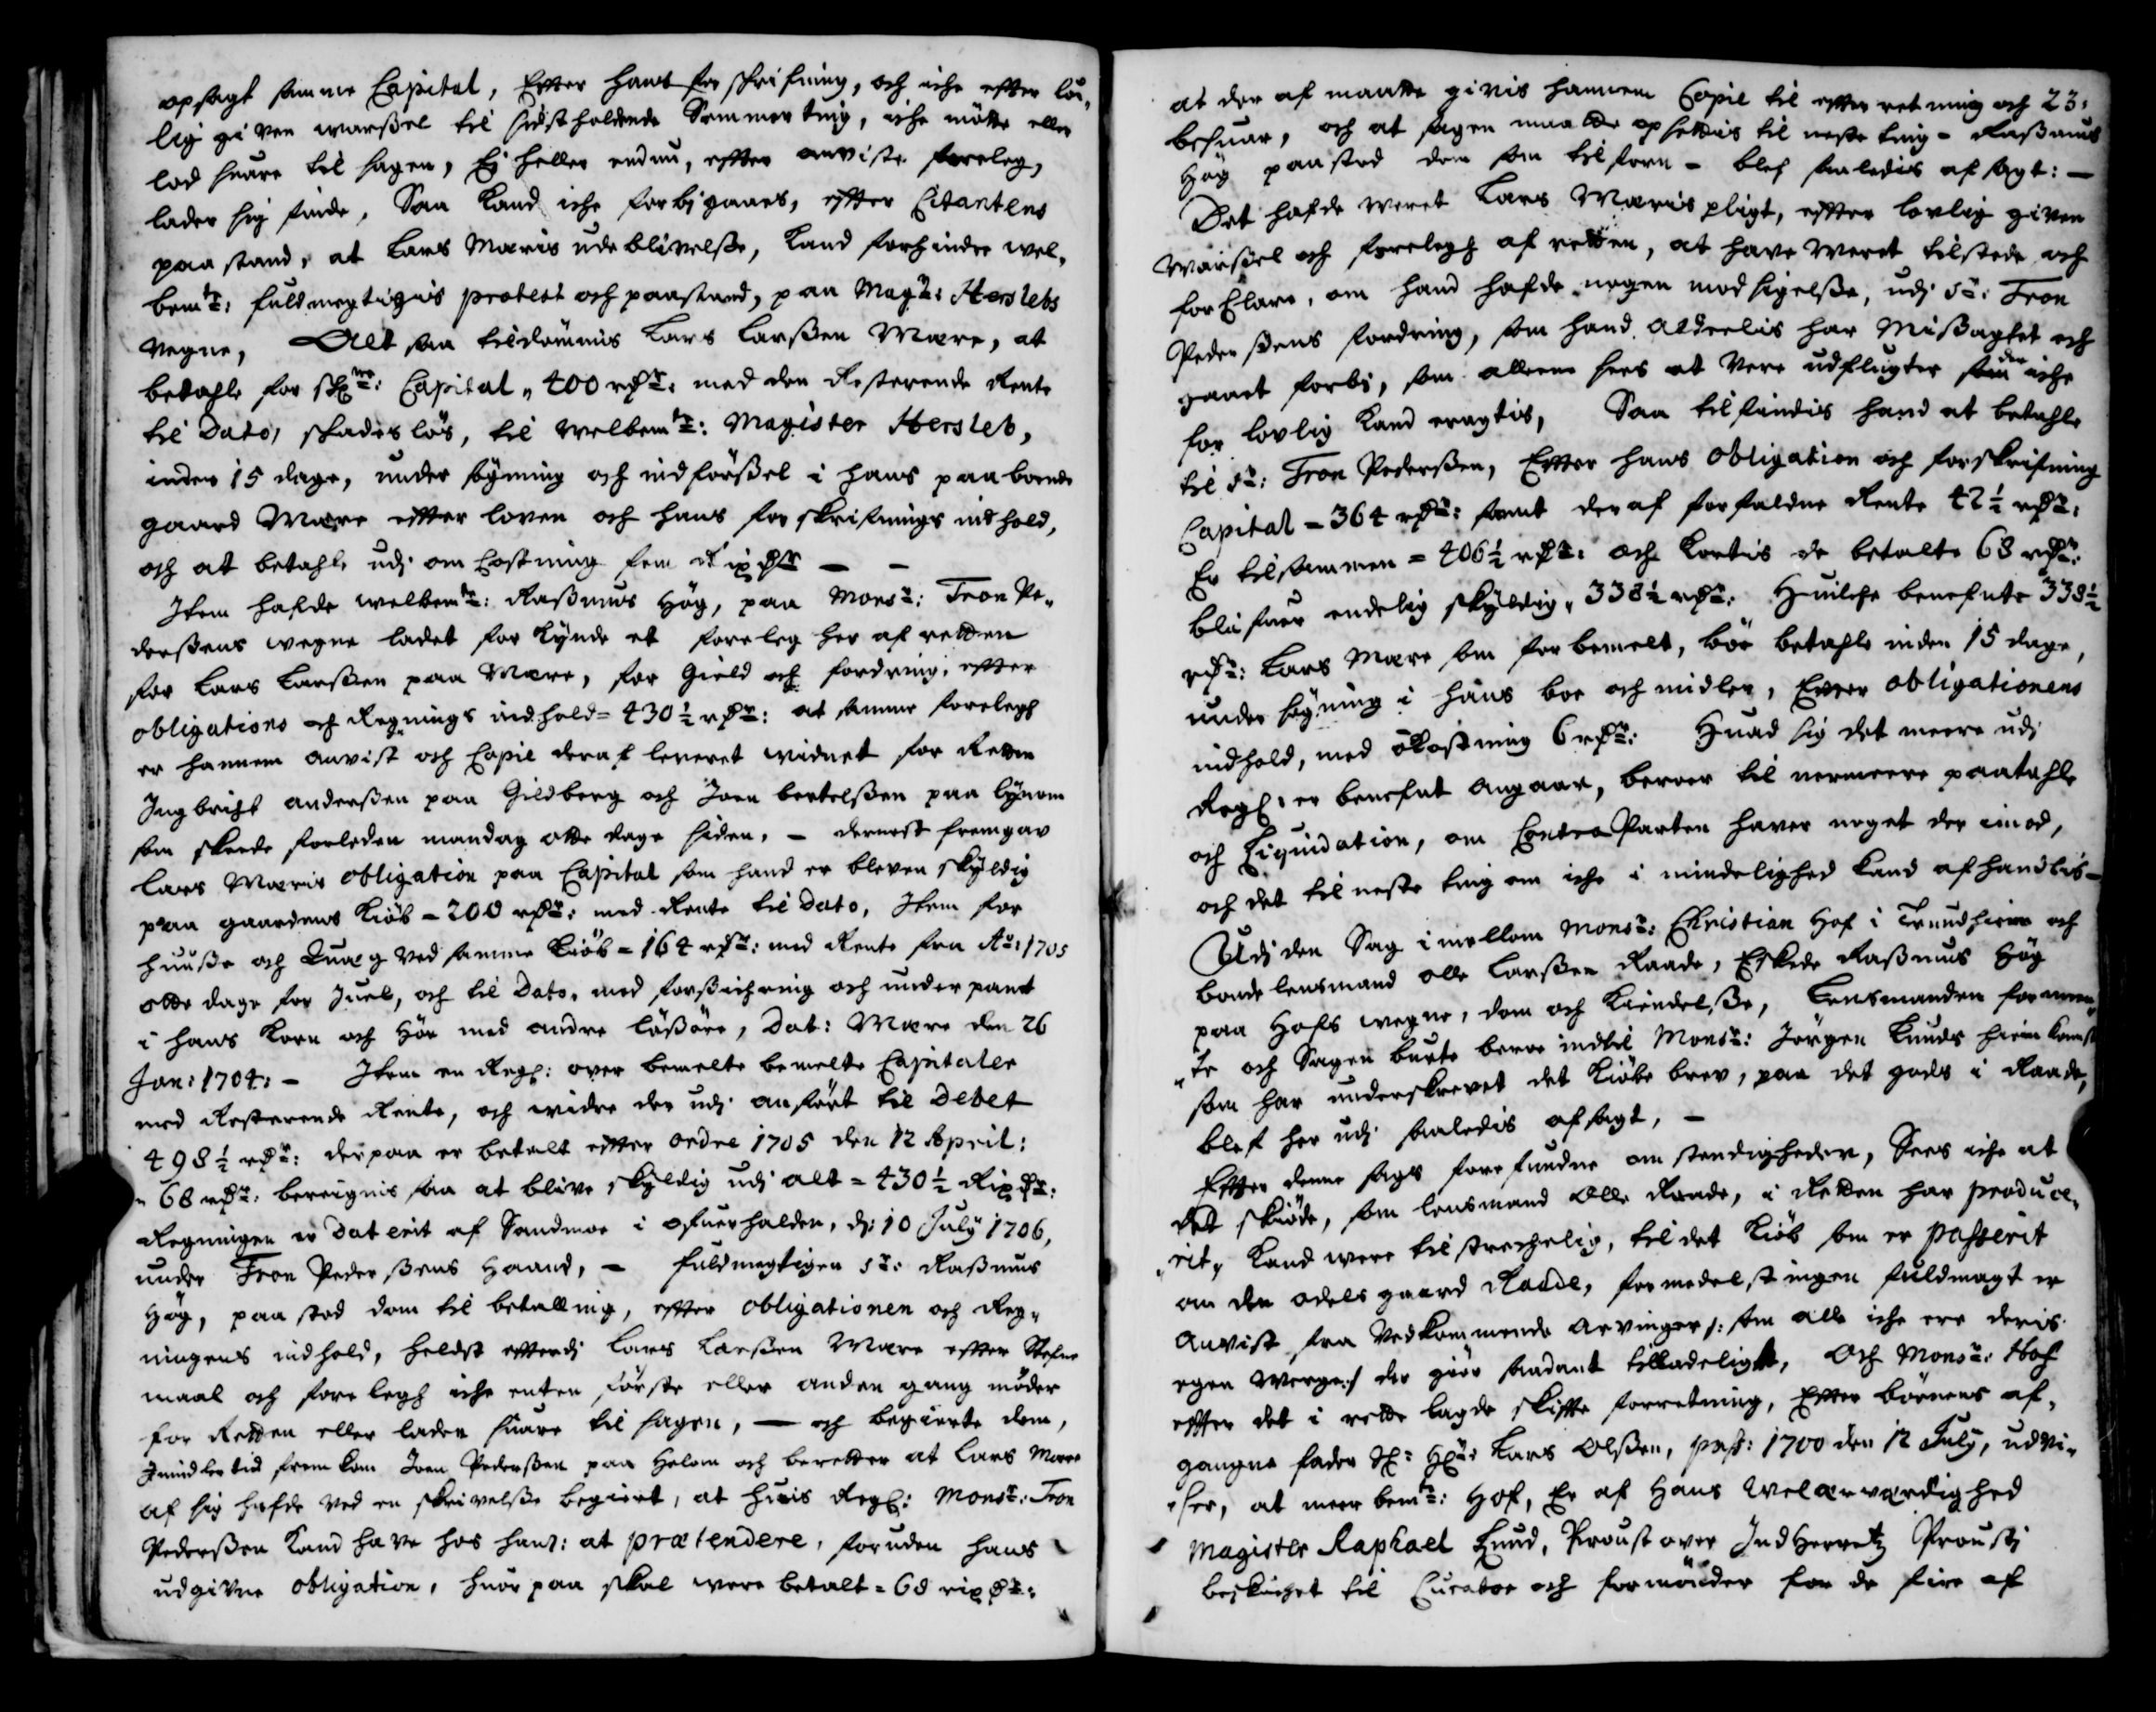 opsagt samme Capital, Efter hans forskrifning, och iche efter lou,
lig given warßel til sidstholdende Sommer ting, iche mötte eller
lod suare til sagen, Ej heller endnu, efter anviste foreleg,
lader sig finde, Saa kand iche forbigaaes, efter Citantens
paastand, at Lars Mæris udeblivelße, kand forhindre wel,
bemte: fuldmegtigis protest och paastand, paa Magr: Herslebs
vegne, Alt saa tildömmis Lars Larßen Mære, at
betahle for schrne: Capital, 400 rdr: med den Resterende Rente
til Dato, skadislös, til welbemte: Magister Hersleb,
inden 15 dage, under sögning och indförßel i hans paaboende
gaard Mære efter loven och hans forskrifnings indhold,
och at betahle udj omkostning fem Rixdr — —
Item hafde welbemte: Raßmus Hög, paa Monsr: Tron Pe,
derßens wegne ladet forkynde et foreleg her af retten
for Lars Larßen paa Mære, for Gield och fordring, efter
obligations och Regnings indhold = 430½ rdr: at samme forelegh
er hannem anvist och Copie deraf leveret widnet for Retten
Ingbricht anderßen paa Gildberg och Joen bertelßen paa lÿnom
som skeede forleden mandag otte dage siden, – dernest fremgav
Lars Mæris obligation paa Capital som hand er bleven skÿldig
paa gaardens kiöb = 200 rdr: med Rente til Dato, Item for
huuße och Quæg ved samme kiöb = 164 rdr: med Rente fra Ao: 1705
otte dage for Juel, och til Dato, med forßichring och underpant
i hans korn och Hör med andre lößöre, Dat: Mære den 26
Jan: 1704: – Item en Regn: over bemelte bemelte Capitaler
med Resterende Rente, och widre der udj anfört til Debet
498½ rdr: der paa er betalt efter ordre 1705 den 12 April:
„68 rdr: bereignis saa at blive skÿldig udj alt = 430½ Rixdr:
Regningen er Daterit af Sandmoe i ofuerhalden, d: 10 Julÿ 1706,
under Tron Pederßens Haand, – fuldmegtigen Sr: Raßmus
Hög, paastod dom til betalling, efter obligationen och Reg,
ningens indhold, heldst efterdj Lars Larßen Mære efter Stefne
maal och forelegh iche enten förste eller anden gang möder
for Retten eller lader suare til sagen, — och begierte dom,
Imidlertid fremkom Joen Pederßen paa Helom och beretter at Lars Mære
af sig hafde ved en skrivelße begiert, at huis Regn: Monsr: Tron
Pederßen kand have hos ham: at prætendere, foruden hans
udgivne obligation, huor paa skal were betalt = 68 rixdr:
at der af maatte givis hannem Copie til efterretning och 23:
besuar, och at sagen maatte opsettis til neste ting – Raßmus
Hög paastod dom som tilforn – blef saaledis afsagt: —
Det hafde weret Lars Mæris pligt, efter lovlig given
Warßel och forelegh af retten, at have weret tilstede och
forklare, om hand hafde nogen modsigelße, udj Sr: Tron
Pederßens fordring, som hand aldeelis har Mißagtet och
gaaet forbi, som alleene sees at vere udflugter som der iche
for lovlig kand eragtis, Saa tilfindis hand at betahle
til Sr: Tron Pederßen, Efter hans obligation och forskrifning
Capital = 364 rdr: samt der af forfaldne Rente 42½ rdr:
Er tilsammen = 406½ rdr: och kortis de betalte 68 rdr:
blifuer endelig skÿldig, 338½ rdr: Huilche benefnte 338½
rdr: Lars Mære som forbemelt, bör betahle inden 15 dage,
under sögning i hans boe och midler, Efter obligationens
indhold, med ökostning 6 rdr: Huad sig det meere udj
Regn: er benefnt angaar, beroer til nermeere paatahle
och Liquidation, om Contra Parten haver noget der imod,
och det til neste ting om iche i mindelighed kand afhandlis –
Udj den Sag imellom Monsr: Christian Hof i Trundhiem och
bonde lensmand olle Larßen Raade, Eskede Raßmus Hög
paa Hofs wegne, dom och kiendelße, Lensmanden formeen
„te och Sagen burte beroe indtil Monsr: Jörgen Lunds hiemkomst
som har underskrevet det kiöbe brev, paa det gods i Raade,
blef her udj saaledis afsagt, —
Efter denne sags forefundne omstendigheder, Sees iche at
det skiöde, som lensmand Olle Raade, i Retten har produce,
„rit, kand were tilstrechelig, til det kiöb som er passerit
om den odels gaard Raade, formedelst ingen fuldmagt er
anvist fra vedkommende arvinger /: som alle iche ere deris
egen werge:/ der giör saadant tilladeligt, Och Monsr: Hof
efter det i rette lagde skifte forretning, Efter börnens af,
gangne fader Sl: Hr: Lars Olßen, paß: 1700 den 12 Julÿ, udvi,
„ser, at meer bemte: Hof, Er af Hans Welærværdighed
Magister Raphael Lund, Proust over Indherretz Prousti
beskichet til Curator och formönder for de fire af